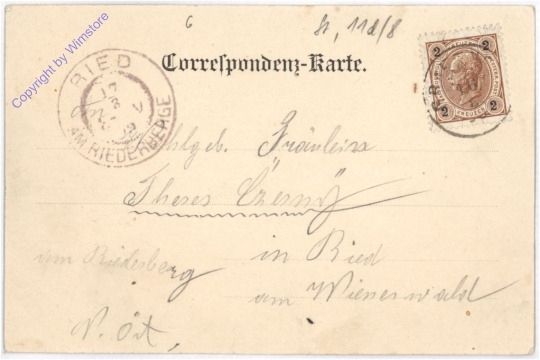 Copyright by Wimstore
6
St, 11d/8
Correspondenz-Karte.
RIED
AM RIEDERBERGE
2 2
2 2
Wohlgeb. Fräulein
Theres Czerny
in Ried
am Riederberg
am Wienerwald
N. Öst,